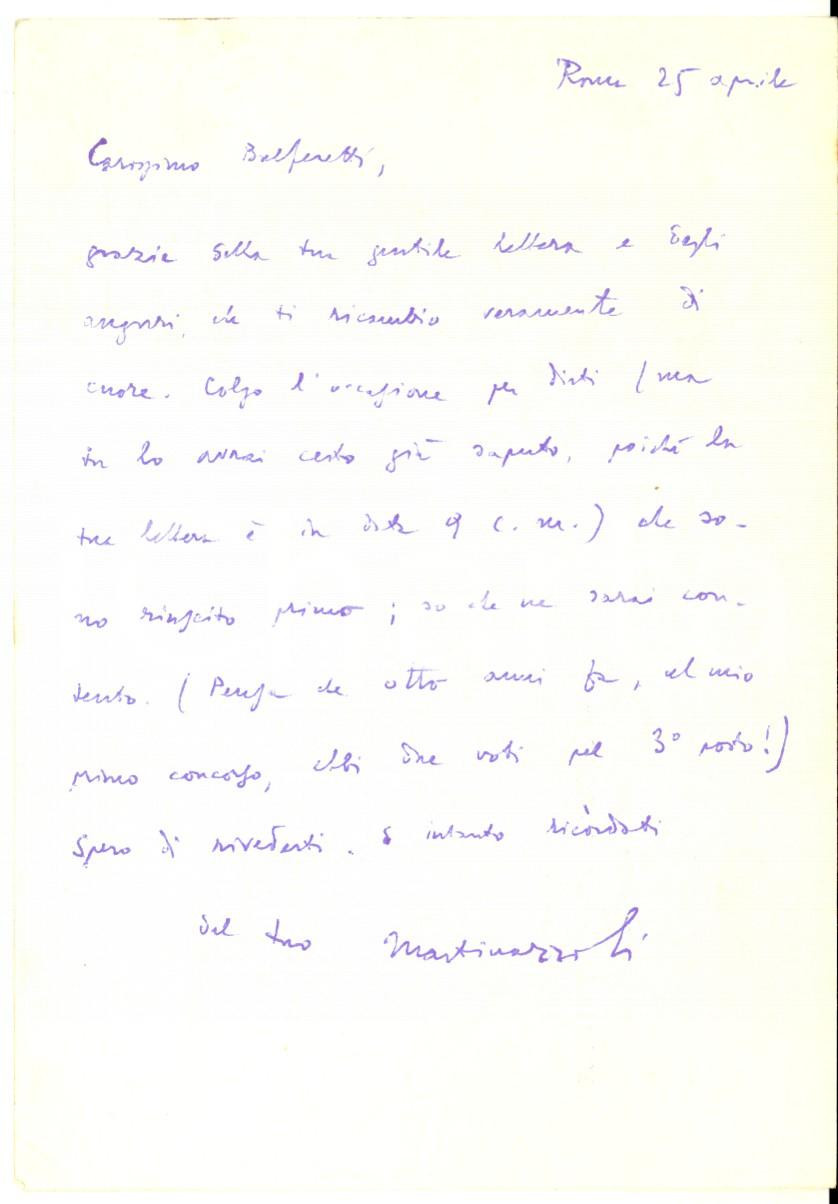 Roma 25 aprile
Carissimo Bolferetti,
grazie della tua gentile lettera e degli
auguri, che ti ricambio veramente di
cuore. Colgo l'occasione per dirti (ma
tu lo avrai certo già saputo, poiché la
tua lettera è in data 9 c.m.) che so-
no riuscito primo; so che ne sarai con-
tento. (Pensa che otto anni fa, al mio
primo concorso, ebbi due voti pel 3° posto!)
Spero di rivederti. E intanto ricòrdati
del tuo Martinazzoli